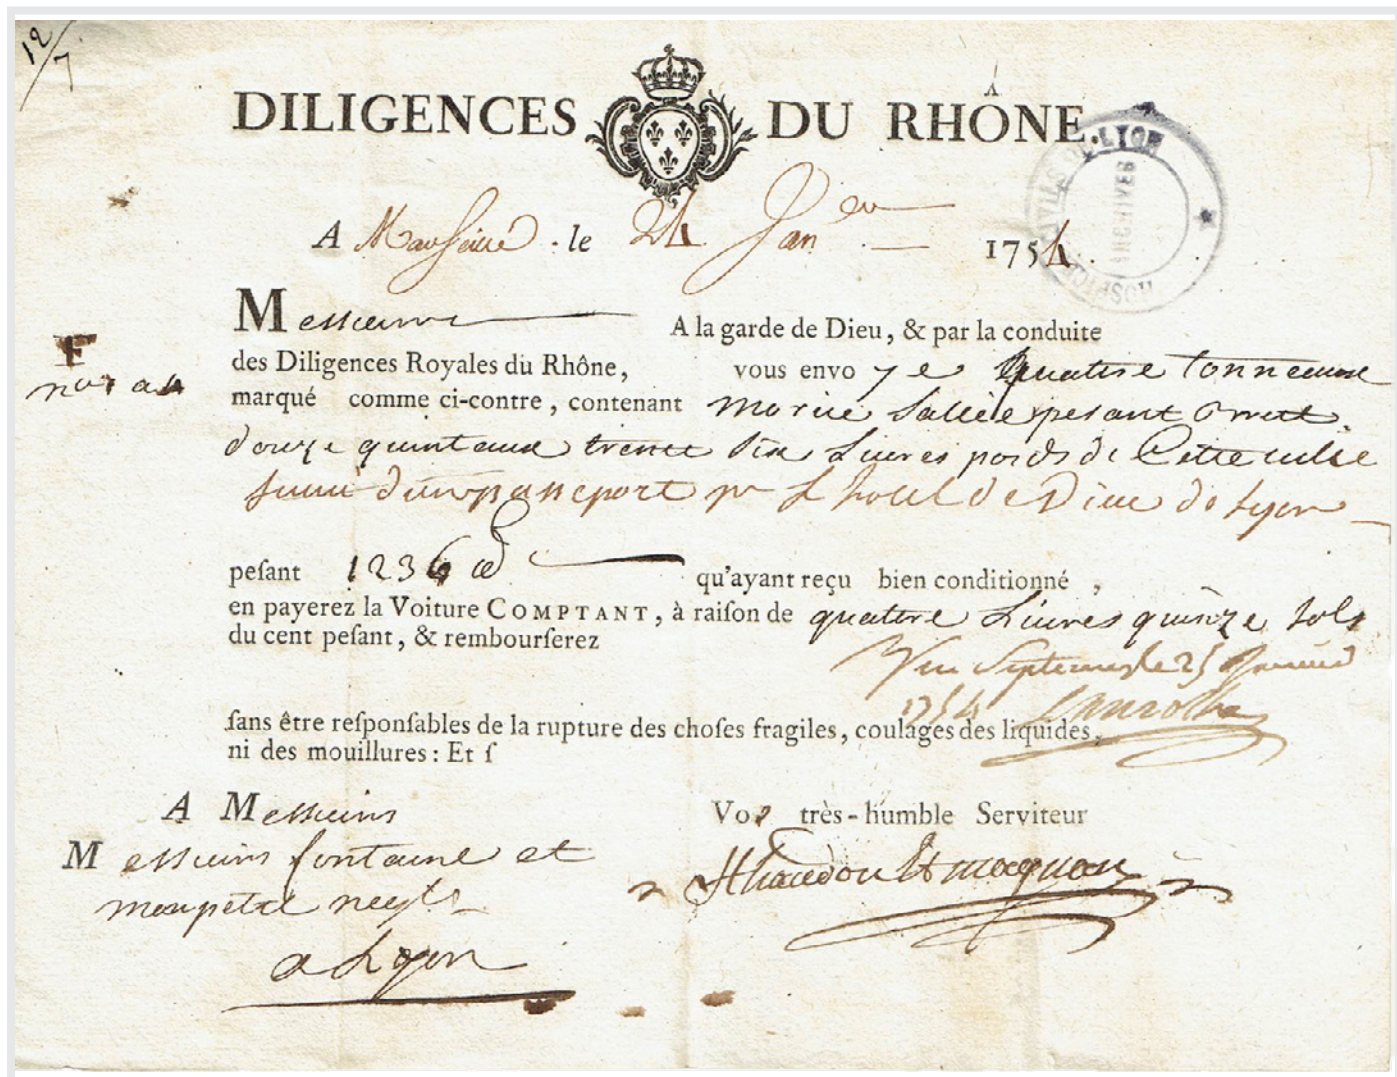 12/7
DILIGENCES DU RHÔNE.
HOSPICES CIVILS DE LYON
ARCHIVES
A Marseille . le 24 Janer 1754.
Messieurs A la garde de Dieu, & par la conduite
F
des Diligences Royales du Rhône, vous envoye quatre tonneaux
marqué comme ci-contre, contenant morue Sallée pesant
douze quintaux trente six Livres poids de
d'un passeport pr L'hotel de Dieu de Lyon
peſant 1236 qu'ayant reçu bien conditionné ,
en payerez la Voiture COMPTANT, à raiſon de quatre Livres quinze sols
du cent peſant, & rembourſerez
Vu Septemes le 25 Janvier
1754
ſans être reſponſables de la rupture des choſes fragiles, coulages des liquides,
ni des mouillures : Et ſ
A Messieurs Vos très-humble Serviteur
Messieurs fontaine et
negts
a Lyon